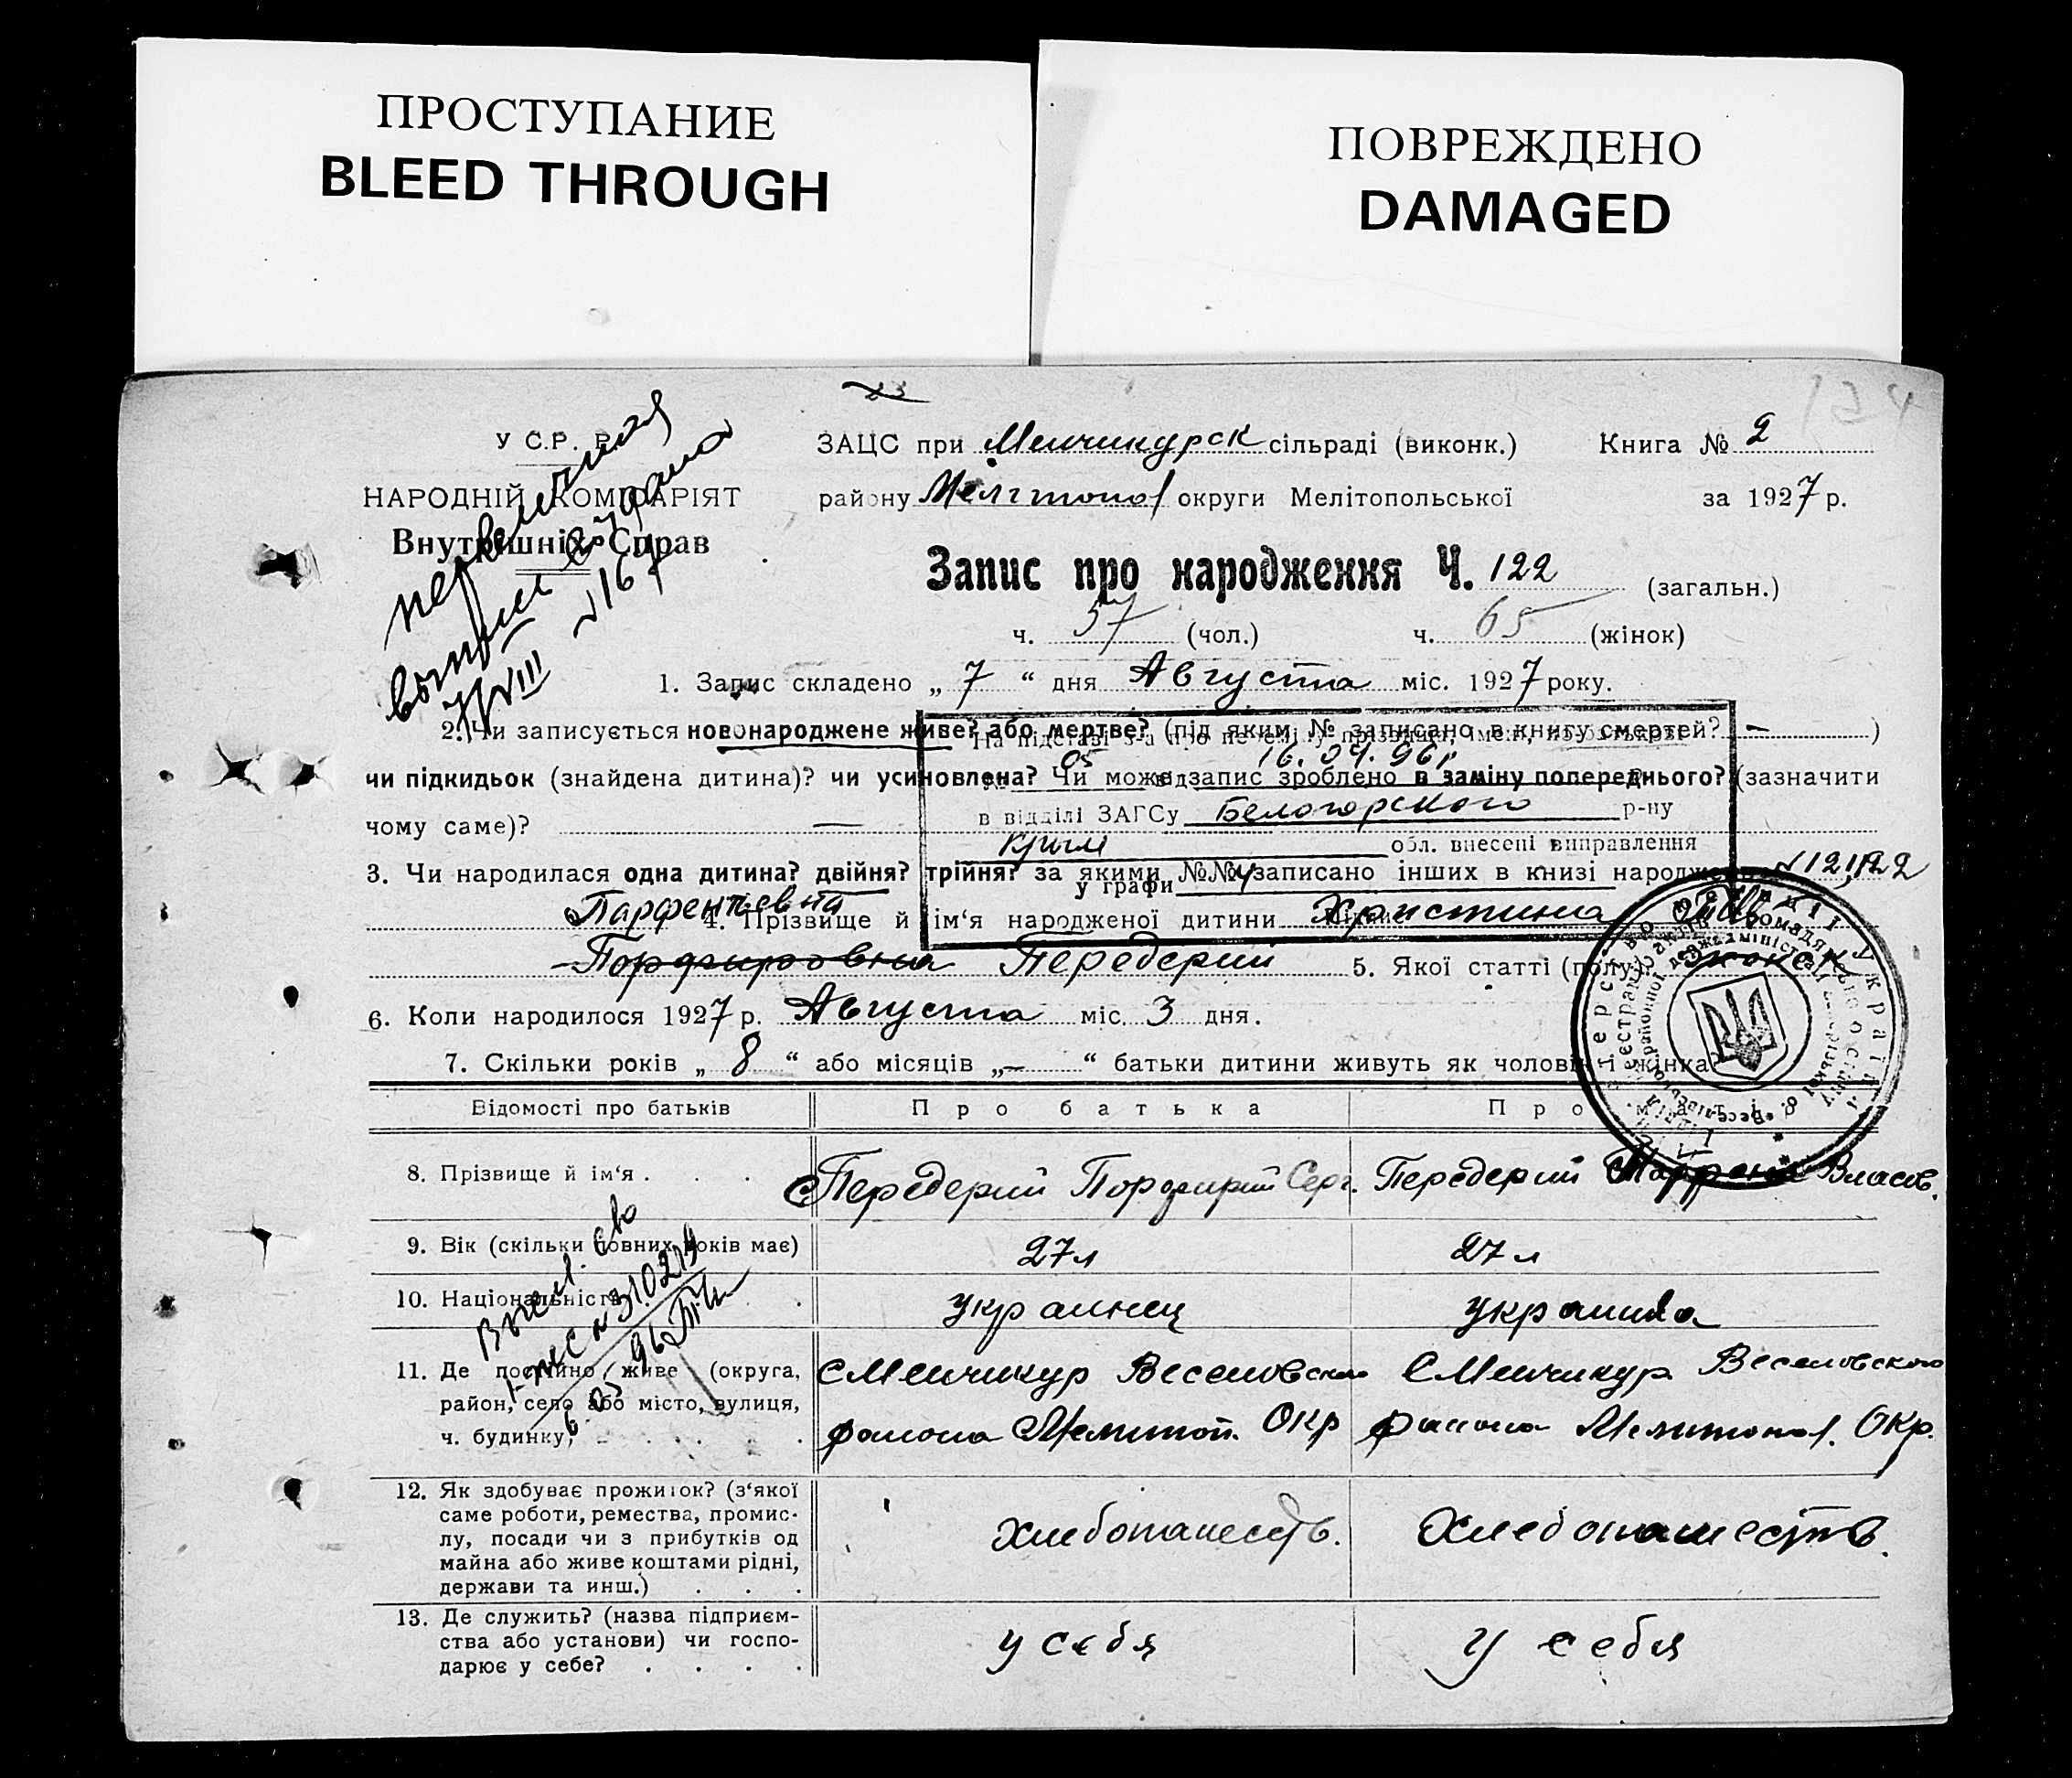 ПРОСТУПАНИЕ
BLEED THROUGH
ПОВРЕЖДЕНО
DAMAGED
У С.Р.Р.
НАРОДНІЙ КОМІСАРІЯТ
Внутрішніх Справ
ЗАЦС при Менчикурск сільраді (виконк.) Книга № 2
району Мелітопол округи Мелітопольської за 1927 р.
Запис про народження Ч. 122 (загальн.)
ч. 57 (чол.) ч. 65 (жінок)
1. Запис складено „ 7 “ дня Августа міс. 1927 року.
2. Чи записується новонароджене живе? або мертве? (під яким № записано в книгу смертей? — )
16.04.96р
чи підкидьок (знайдена дитина)? чи усиновлена? Чи може запис зроблено в заміну попереднього? (зазначити
в відділі ЗАГСу Белогорского р-ну
чому саме)? —
Крым обл. внесені виправлення
3. Чи народилася одна дитина? двійня? трійня? за якими №№ записано інших в книзі народжень
у графи 4
Парфентьевна
4. Прізвище й ім‘я народженої дитини Христина
Порфировна Передерий 5. Якої статті (полу)? женск
6. Коли народилося 1927 р. Августа міс. 3 дня.
7. Скільки років „ 8 “ або місяців „ — “ батьки дитини живуть як чоловік і жінка?
Відомості про батьків Про батька Про матір
8. Прізвище й ім‘я . . . Передерий Порфирий Серг. Передерий Власов.
9. Вік (скільки повних років має) 27 л 27 л
10. Національність . украинец украинка
11. Де постійно живе (округа, С Менчикур Веселовского С Менчикур Веселовского
район, село або місто, вулиця,
ч. будинку) района Мелитоп. Окр района Мелитопол. Окр.
12. Як здобуває прожиток? (з‘якої
саме роботи, ремества, промис-
лу, посади чи з прибутків од хлебопашеств. хлебопашеств.
майна або живе коштами рідні,
держави та инш.) . . .
13. Де служить? (назва підприєм-
ства або установи) чи госпо- у себя у себя
дарює у себе? . . . .